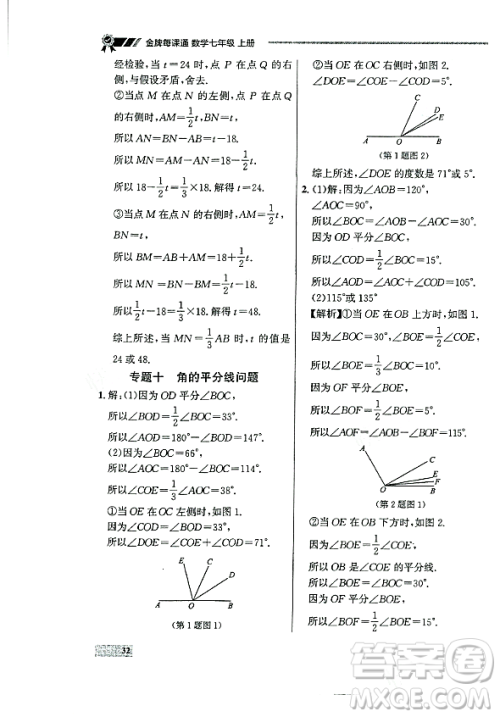 金牌每课通 数学七年级 上册
经检验,当 t=24 时,点 P 在点 Q 的右
侧,与假设矛盾,舍去.
②当点 M 在点 N 的左侧,点 P 在点 Q
的右侧时,AM=1/2t,AN=t-18.
所以 MN=AM-AN=18-1/2t.
所以 18-1/2t=1/3×18.解得 t=24.
③当点 M 在点 N 的右侧时,AM=1/2t,
AN=t-18.
所以 BM=AM-AB=1/2t-18.
所以 MN=AN-AM=1/2t-18.
所以 1/2t-18=1/3×18.解得 t=48.
综上所述,当 MN=1/3AB 时,t 的值是
24 或 48.
专题十 角的平分线问题
1.解:(1)因为 OD 平分∠BOC,
所以∠BOD=1/2∠BOC=33°.
所以∠AOD=180°-∠BOD=147°.
(2)因为∠BOC=66°,
所以∠AOC=180°-∠BOC=114°.
所以∠COE=1/3∠AOC=38°.
①当 OE 在 OC 左侧时,如图 1.
因为 OD 平分∠BOC,
所以∠COD=1/2∠BOC=33°.
所以∠DOE=∠COE+∠COD=71°.
E
C
D
A
O
B
(第 1 题图 1)
32
②当 OE 在 OC 右侧时,如图 2.
∠DOE=∠COE-∠COD=5°.
C
D
E
A
O
B
(第 1 题图 2)
综上所述,∠DOE 的度数是 71°或 5°.
2.(1)解:因为∠AOB=120°,
∠AOC=90°,
所以∠BOC=∠AOB-∠AOC=30°.
因为 OD 平分∠BOC,
所以∠COD=1/2∠BOC=15°.
(2)115°或 135°
【解析】①当 OE 在 OB 上方时,如图 1.
因为∠BOE=1/3∠BOC,
所以∠BOE=1/3∠BOC=10°.
因为 OF 平分∠BOE,
所以∠BOF=1/2∠BOE=5°.
所以∠AOF=∠AOB-∠BOF=115°.
A
C
D
E
F
O
B
(第 2 题图 1)
②当 OE 在 OB 下方时,如图 2.
因为∠BOE=1/2∠COE,
所以∠BOE=∠BOC=30°.
因为 OF 平分∠BOE,
所以∠BOF=1/2∠BOE=15°.